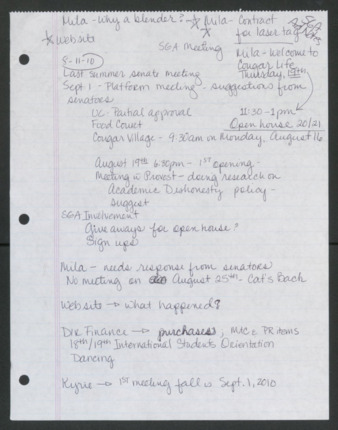 Mila - Why a blender?
Mila - Contract
for laser tag
Website
SGA Meeting
Mila - Welcome to
Cougar Life
Thursday,
8-11-10
Last Summer senate meeting
Sept. 1 - Platform meeting - suggestions from
senators
UC - Partial approval
11:30 - 1pm
Food Court
Open house 20/21
Cougar Village - 9:30am on Monday, August 16
August 19th 6:30pm - 1st opening -
Meeting w Provost - doing research on
Academic Dishonesty policy -
suggest
SGA Involvement
Give aways for open house?
Sign ups
Mila - needs response from senators
No meeting on August 25th - Cat's Bach
Website → what happened?
Dir Finance → purchases, MAC & PR items
18th/19th International Students Orientation
Dancing
Kyrie → 1st meeting fall is Sept. 1, 2010